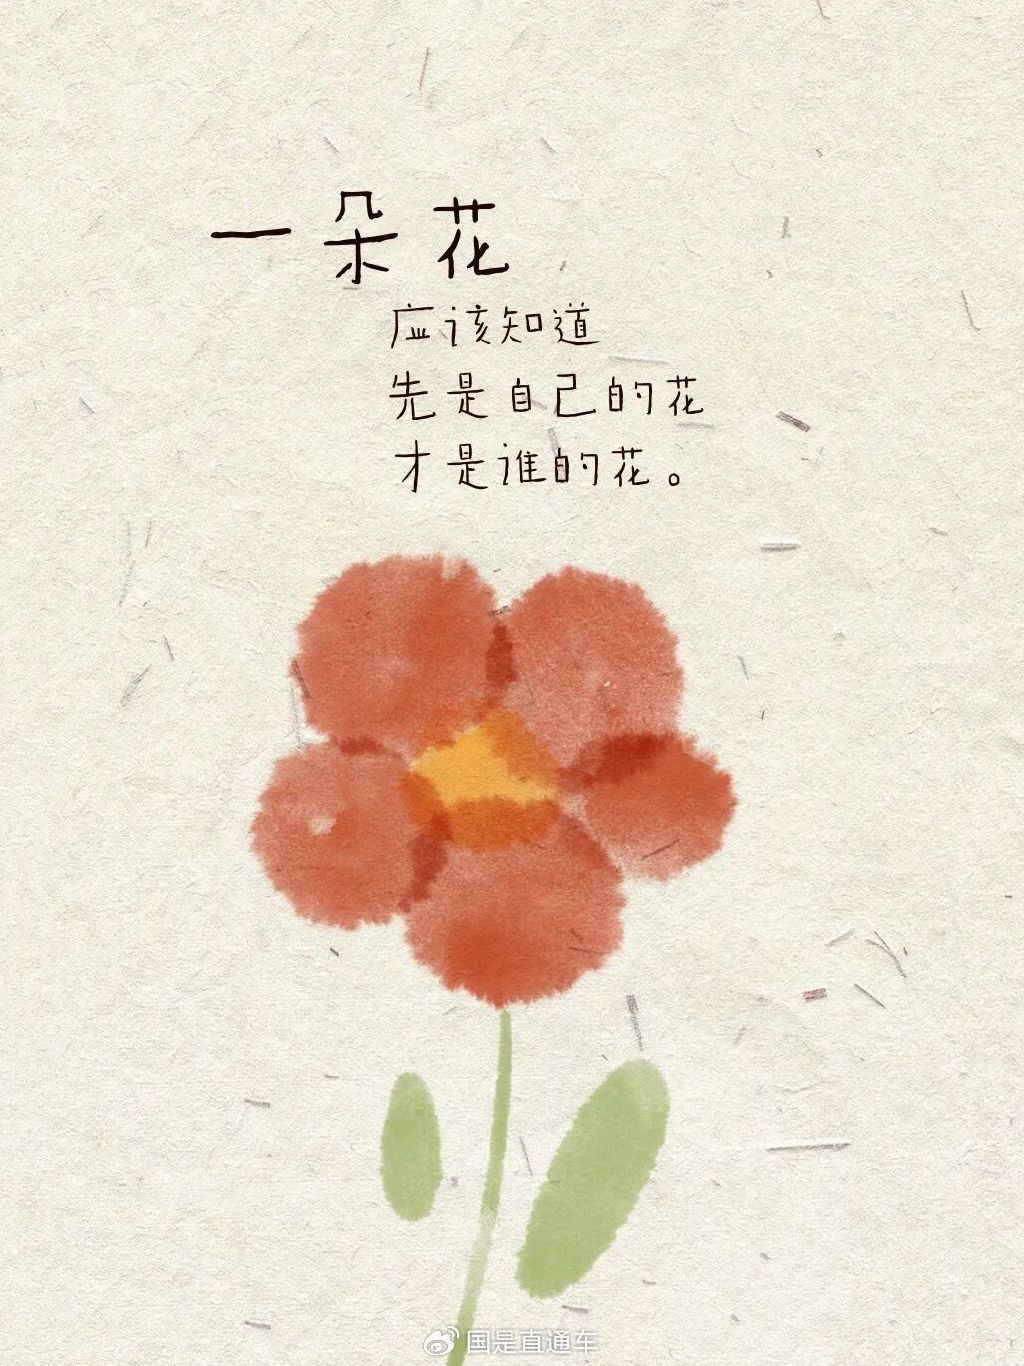 一朵花
应该知道
先是自己的花
才是谁的花。
国是直通车